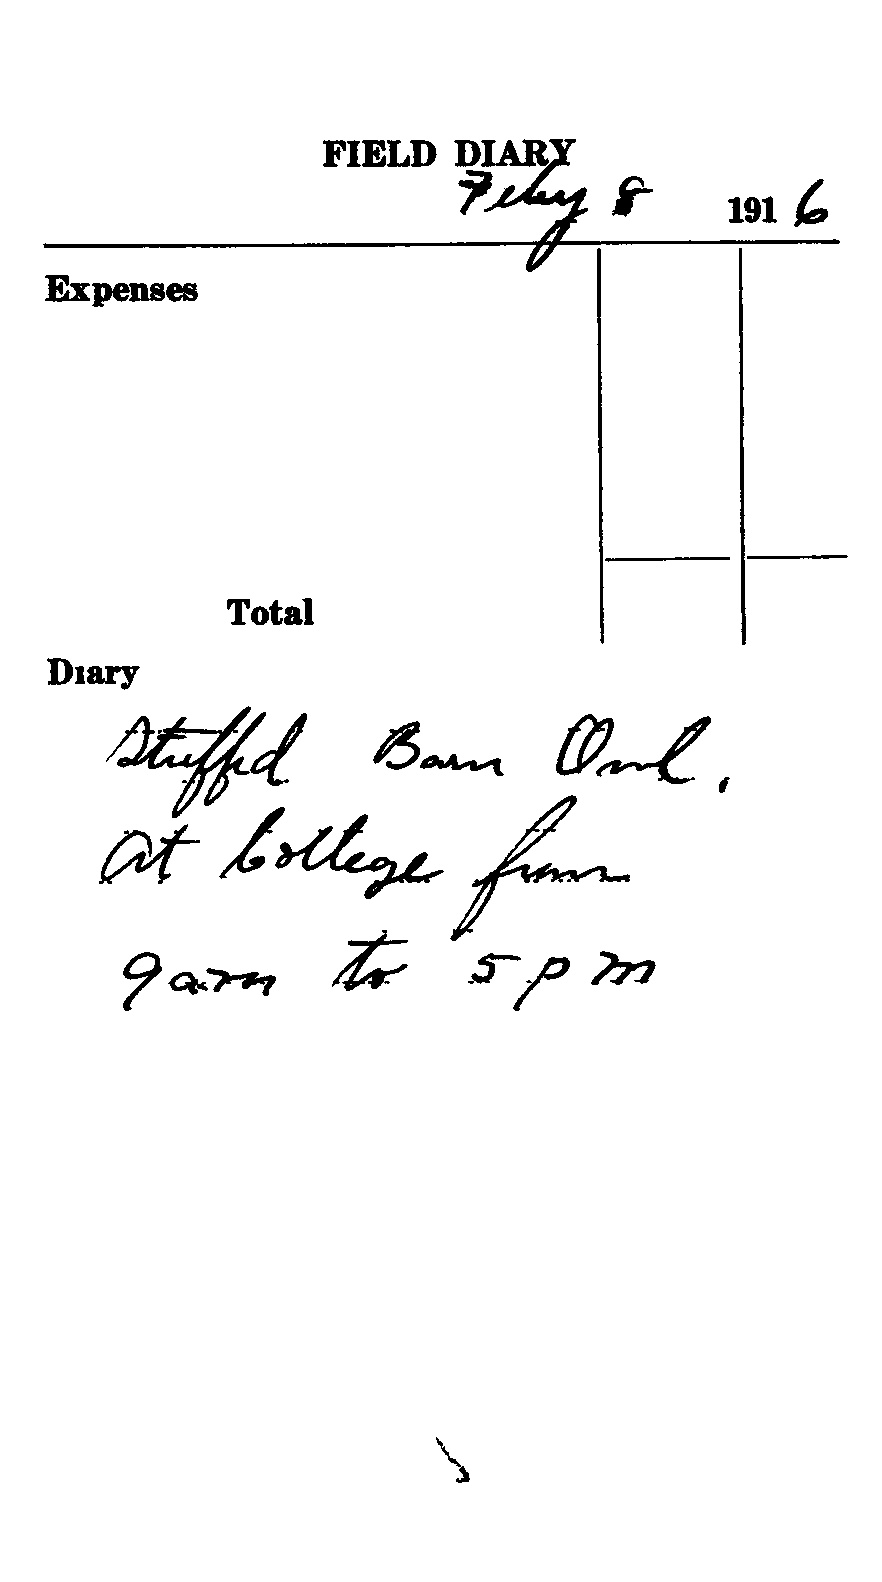 FIELD DIARY
Feby 8 1916
Expenses
Total
Diary
Stuffed Barn Owl.
At College from
9 am to 5 pm